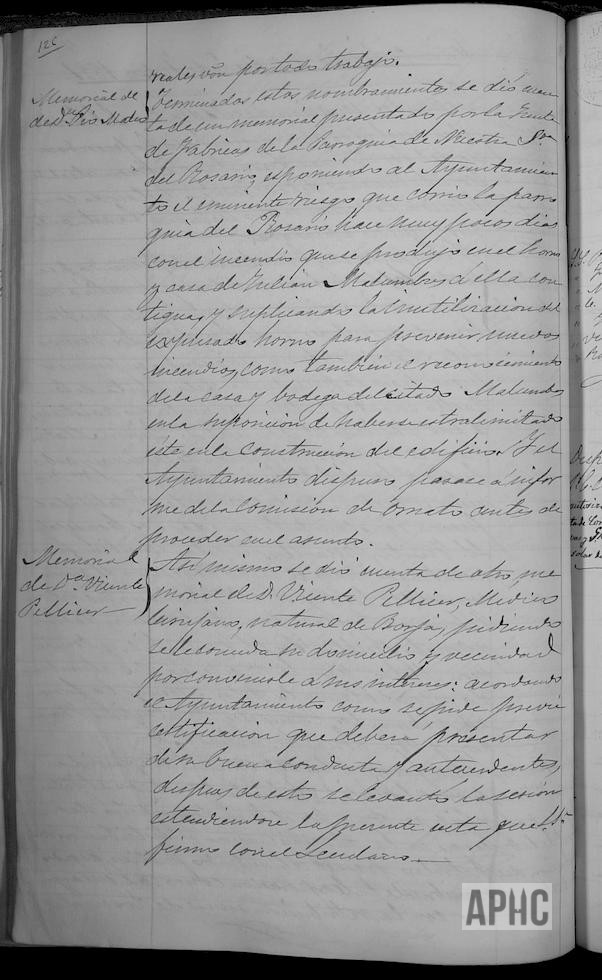 126
reales vón por todo trabajo.
Memorial de
de Dn Pio Mateo
Terminados estos nombramientos se dió cuen
ta de un memorial presentado por la Junta
de Fabrica de la Parroquia de Nuestra Sra
del Rosario, esponiendo al Ayuntamien
to el eminente riesgo que corrio la parro
quia del Rosario hace muy pocos dias
con el incendio que se produjo en el horno
y casa de Julian Malumbres á ella con
tigua, y suplicando la inutilizacion del
espresado horno para prevenir nuevos
incendios, como tambien el reconocimiento
de la casa y bodega del citado Malumbres
en la suposicion de haberse estralimitado
éste en la construcción del edificio. Y el
Ayuntamiento dispuso pasase á infor
me de la Comision de ornato antes de
proceder en el asunto.
Memorial
de Dn Vicente
Pellicer
Asi mismo se dió cuenta de otro me
morial de D. Vicente Pellicer, Medico
Cirujano, natural de Borja, pidiendo
se le conceda su domicilio y vecindad
por convenirle á sus intereses: acordando
el Ayuntamiento como se pide previa
certificacion que deberá presentar
de su buena conducta y antecedentes,
despues de esto se levantó la sesion
estendiendose la presente acta que S.S.
firmó con el Secretario.
APHC